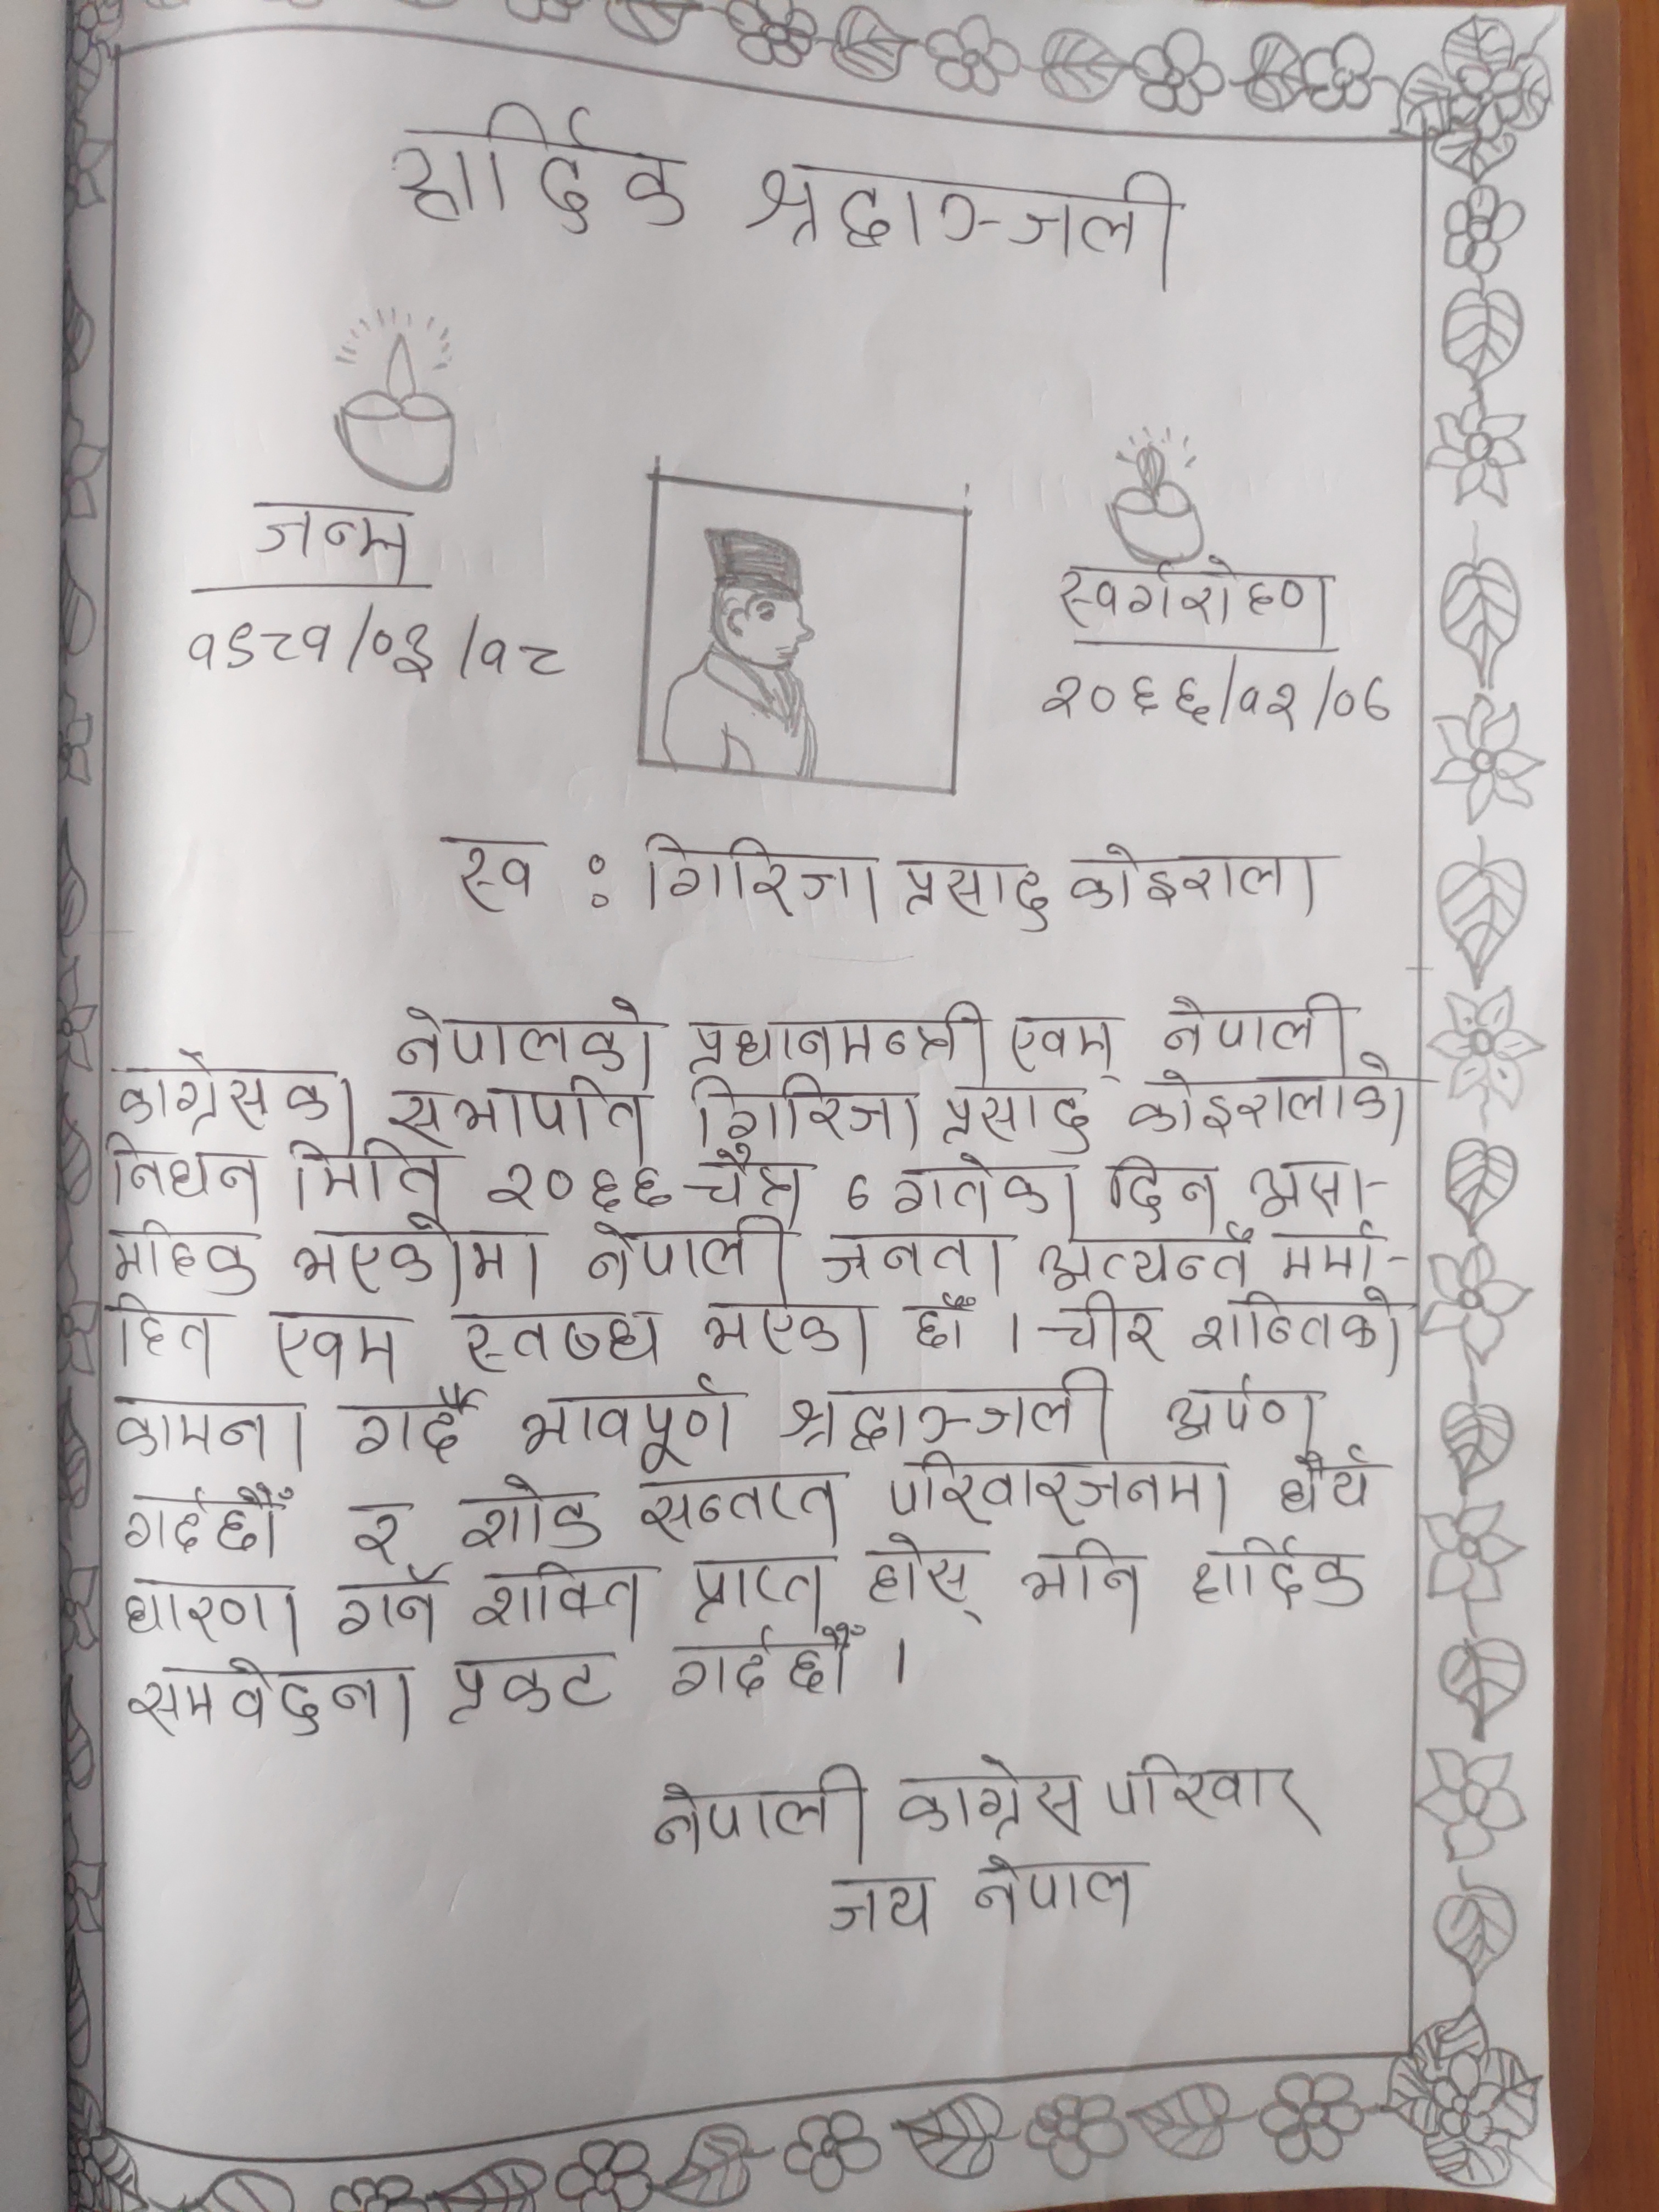 हार्दिक श्रद्धाञ्जली
जन्म
१९८१/०३/१८
स्वर्गरोहण
२०६६/१२/०७
स्व : गिरिजा प्रसाद कोइराला
नेपालको प्रधानमन्त्री एवम् नेपाली
काग्रेसका सभापति गिरिजा प्रसाद कोइरालाको
निधन मिति २०६६ चैत्र ७ गतेका दिन असा-
महिक भएकोमा नेपाली जनता अत्यन्तै मर्मा-
हित एवम स्तब्ध भएका छौँ । चीर शान्तिको
कामना गर्दै भावपूर्ण श्रद्धाञ्जली अर्पण
गर्दछौँ र शोक सन्तप्त परिवारजनमा धैर्य
धारणा गर्ने शक्ति प्राप्त होस् भनि हार्दिक
समवेदना प्रकट गर्दछौँ ।
नेपाली काग्रेस परिवार
जय नेपाल